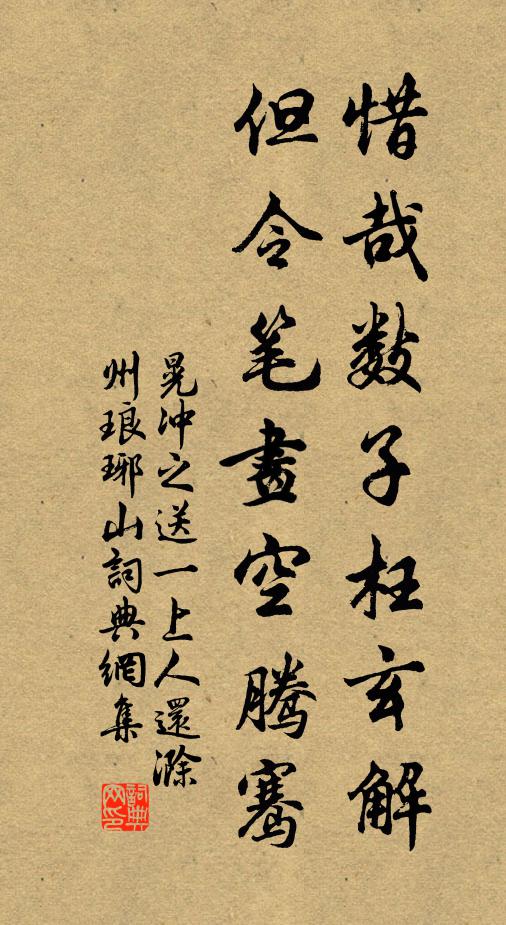 惜哉数子枉玄解
但令笔画空腾骞
晁冲之送一上人還滁
州琅琊山詞典網集
詞典
网印